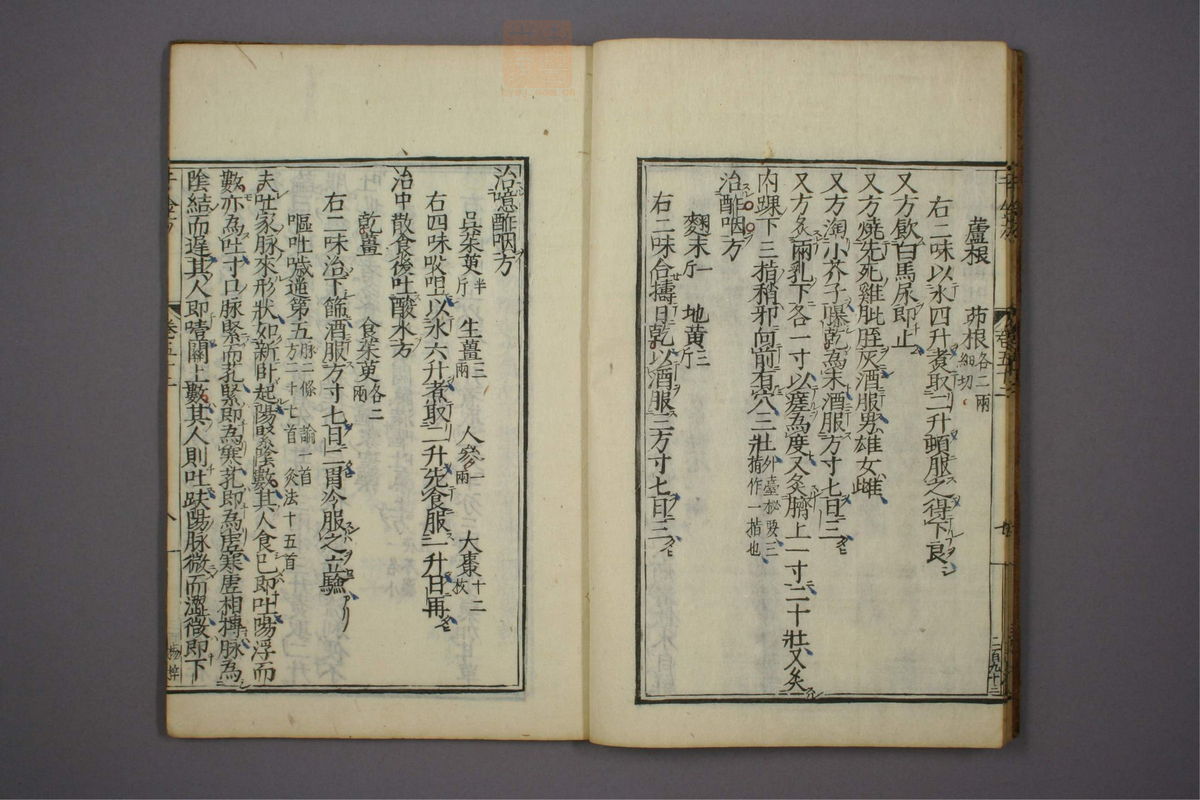 蘆根　茆根各二兩細切
右二味以水四升煮取二升頓服之得下良
又方飲白馬尿即止
又方燒先死雞肶胵灰酒服男雄女雌
又方淘小芥子曝乾爲末酒服方寸匕日三
又方灸兩乳下各一寸以瘥爲度又灸臍上一寸二十壯又灸
内踝下三指稍邪向前有穴三壯外臺秘要三指作一指也
治酢咽方
麴末一斤　地黄三斤
右二味合擣日乾以酒服三方寸匕日三
二百九十二
治噫酢咽方
呉茱萸半斤　生薑三兩　人參一兩　大棗十二枚
右四味㕮咀以水六升煮取二升先食服一升日再
治中散食後吐酸水方
乾薑　食茱萸各二兩
右二味治下篩酒服方寸匕日二胃冷服之立驗
嘔吐噦逆第五脉二條　論一首方二十七首　灸法十五首
夫吐家脉來形狀如新臥起陽緊陰數其人食已即吐陽浮而
數亦為吐寸口脉緊而芤緊即為寒芤即為虚寒虚相摶脉為
陰結而遲其人即噎關上數其人則吐趺陽脉微而澀微即下
千金方
卷五十二